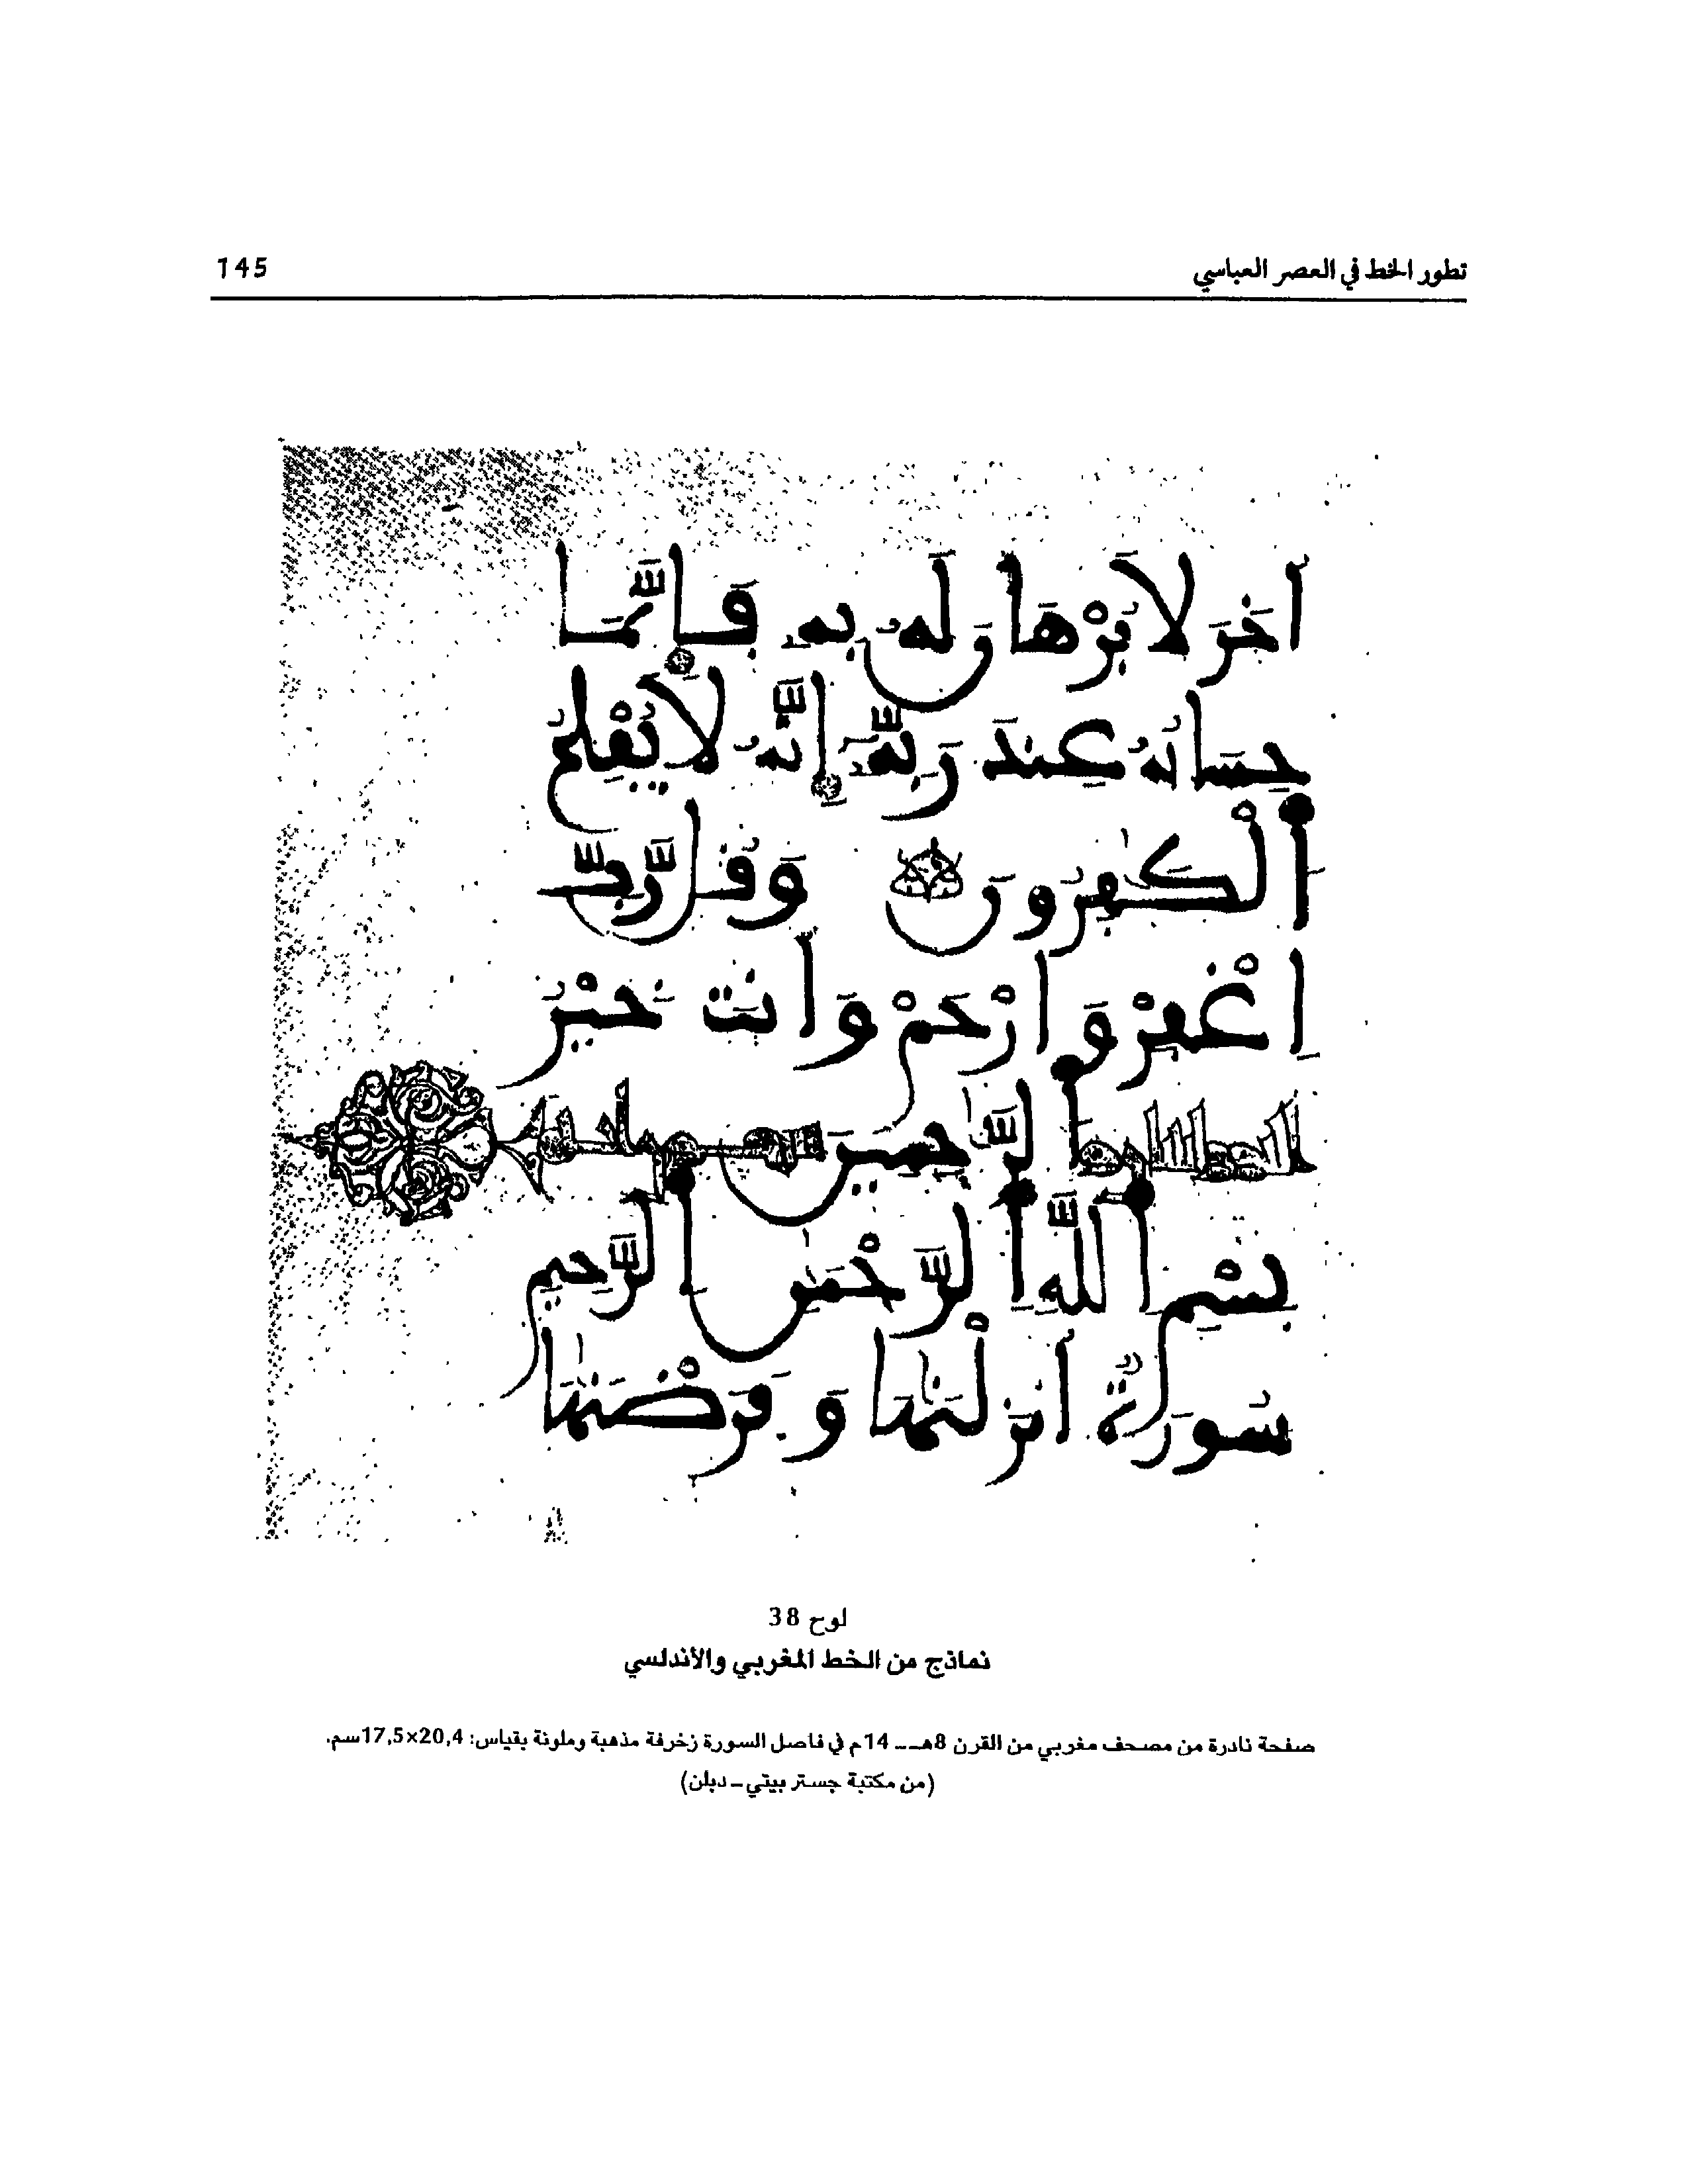 تطور الخط في العصر العباسي 145
اخَرَ لَا بُرْهَانَ لَهُ بِهِ فَإِنَّمَا
حِسَابُهُ عِندَ رَبِّهِ إِنَّهُ لَا يُفْلِحُ
الْكَٰفِرُونَ وَقُل رَّبِّ
اغْفِرْ وَارْحَمْ وَأَنتَ خَيْرُ
الرَّٰحِمِينَ
بِسْمِ اللَّهِ الرَّحْمَٰنِ الرَّحِيمِ
سُورَةٌ أَنزَلْنَٰهَا وَفَرَضْنَٰهَا
لوح 38
نماذج من الخط المغربي والأندلسي
صفحة نادرة من مصحف مغربي من القرن 8هـ ـ 14م في فاصل السورة زخرفة مذهبة وملونة بقياس: 20,4×17,5سم.
(من مكتبة جستر بيتي ـ دبلن)